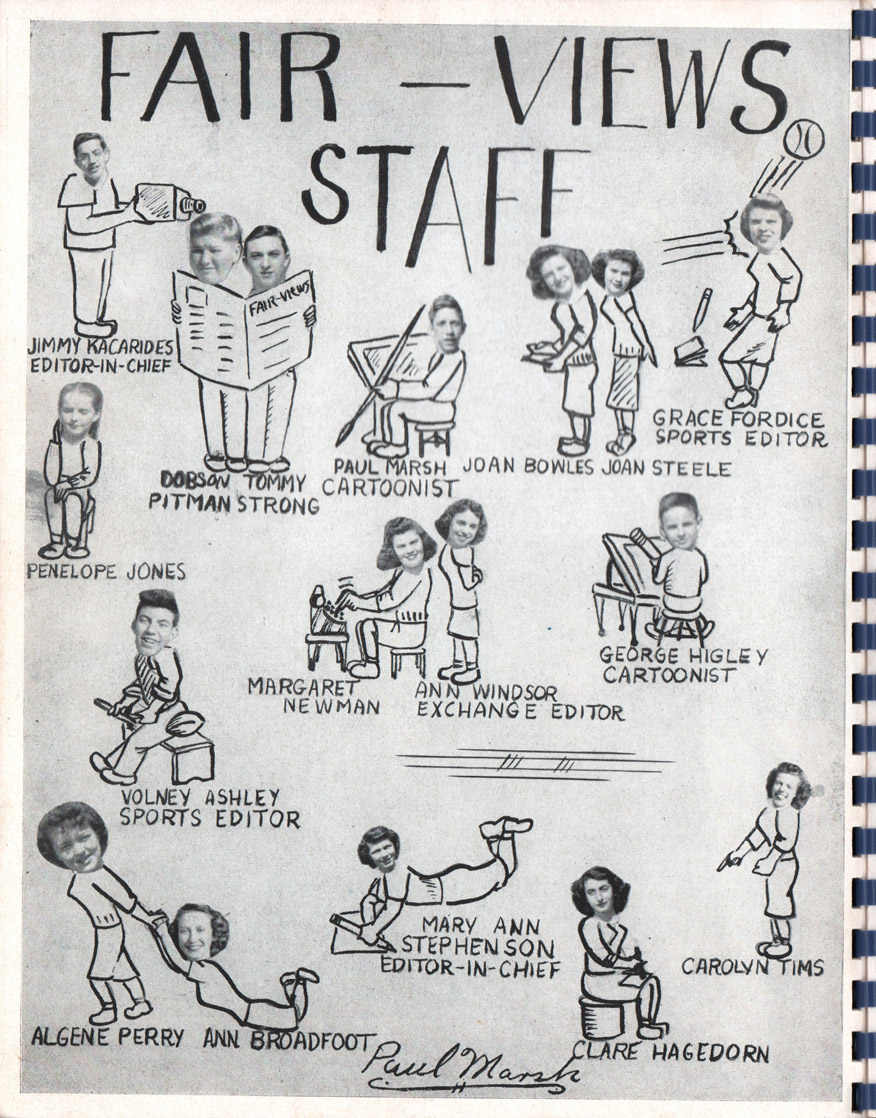 FAIR – VIEWS
STAFF
FAIR-VIEWS
JIMMY KACARIDES
EDITOR-IN-CHIEF
DOBSON TOMMY
PITMAN STRONG
PAUL MARSH
CARTOONIST
JOAN BOWLES JOAN STEELE
GRACE FORDICE
SPORTS EDITOR
PENELOPE JONES
MARGARET
NEWMAN
ANN WINDSOR
EXCHANGE EDITOR
GEORGE HIGLEY
CARTOONIST
VOLNEY ASHLEY
SPORTS EDITOR
MARY ANN
STEPHENSON
EDITOR-IN-CHIEF
CAROLYN TIMS
ALGENE PERRY ANN BROADFOOT
CLARE HAGEDORN
Paul Marsh